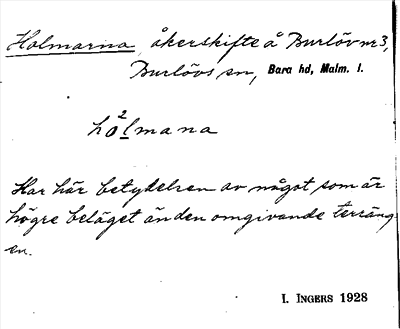 Holmarna åkerskifte å Burlöv nr 3,
Burlövs sn, Bara hd, Malm. l.
hò²lmana
Har här betydelsen av något som är
högre beläget än den omgivande terräng
en.
I. INGERS 1928